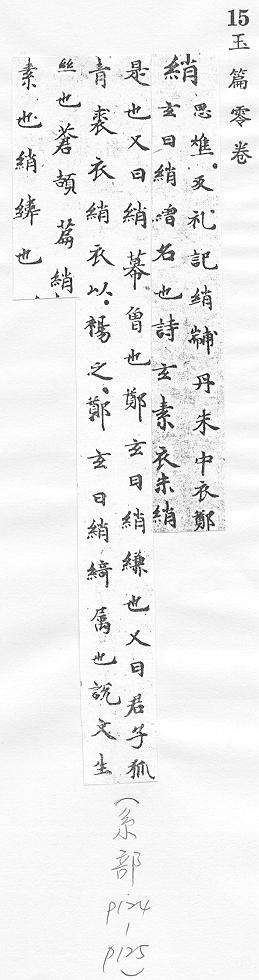 15
玉篇零卷
綃 思燋反礼記綃黼丹朱中衣鄭
玄曰綃繒名也詩玄素衣朱綃
是也又曰綃幕魯也鄭玄曰綃縑也又曰君子狐
青裘衣綃衣以裼之鄭玄曰綃綺属也說文生
絲也蒼頡篇綃
素也綃縴也
(糸部
p124
|
p125)